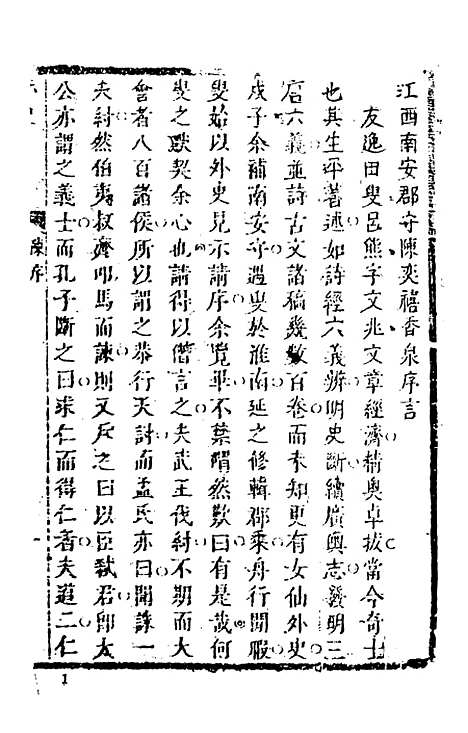 江西南安郡守陳奕禧香泉序言
友逸田叟呂熊字文兆文章經濟精奧卓拔當今奇士
也其生平著述如詩經六義辨明史斷續廣輿志發明三
唐六義並詩古文諸稿幾數百卷而未知更有女仙外史
戊子余補南安守遇叟於淮南延之修輯郡乘舟行閒暇
叟始以外史見示請序余覽畢不禁喟然歎曰有是哉何
叟之默契余心也請得以僭言之夫武王伐紂不期而大
會者八百諸侯所以謂之恭行天討而孟氏亦曰聞誅一
夫紂然伯夷叔齊叩馬而諫則又斥之曰以臣弒君卽太
公亦謂之義士而孔子斷之曰求仁而得仁者夫道二仁
陳序
1